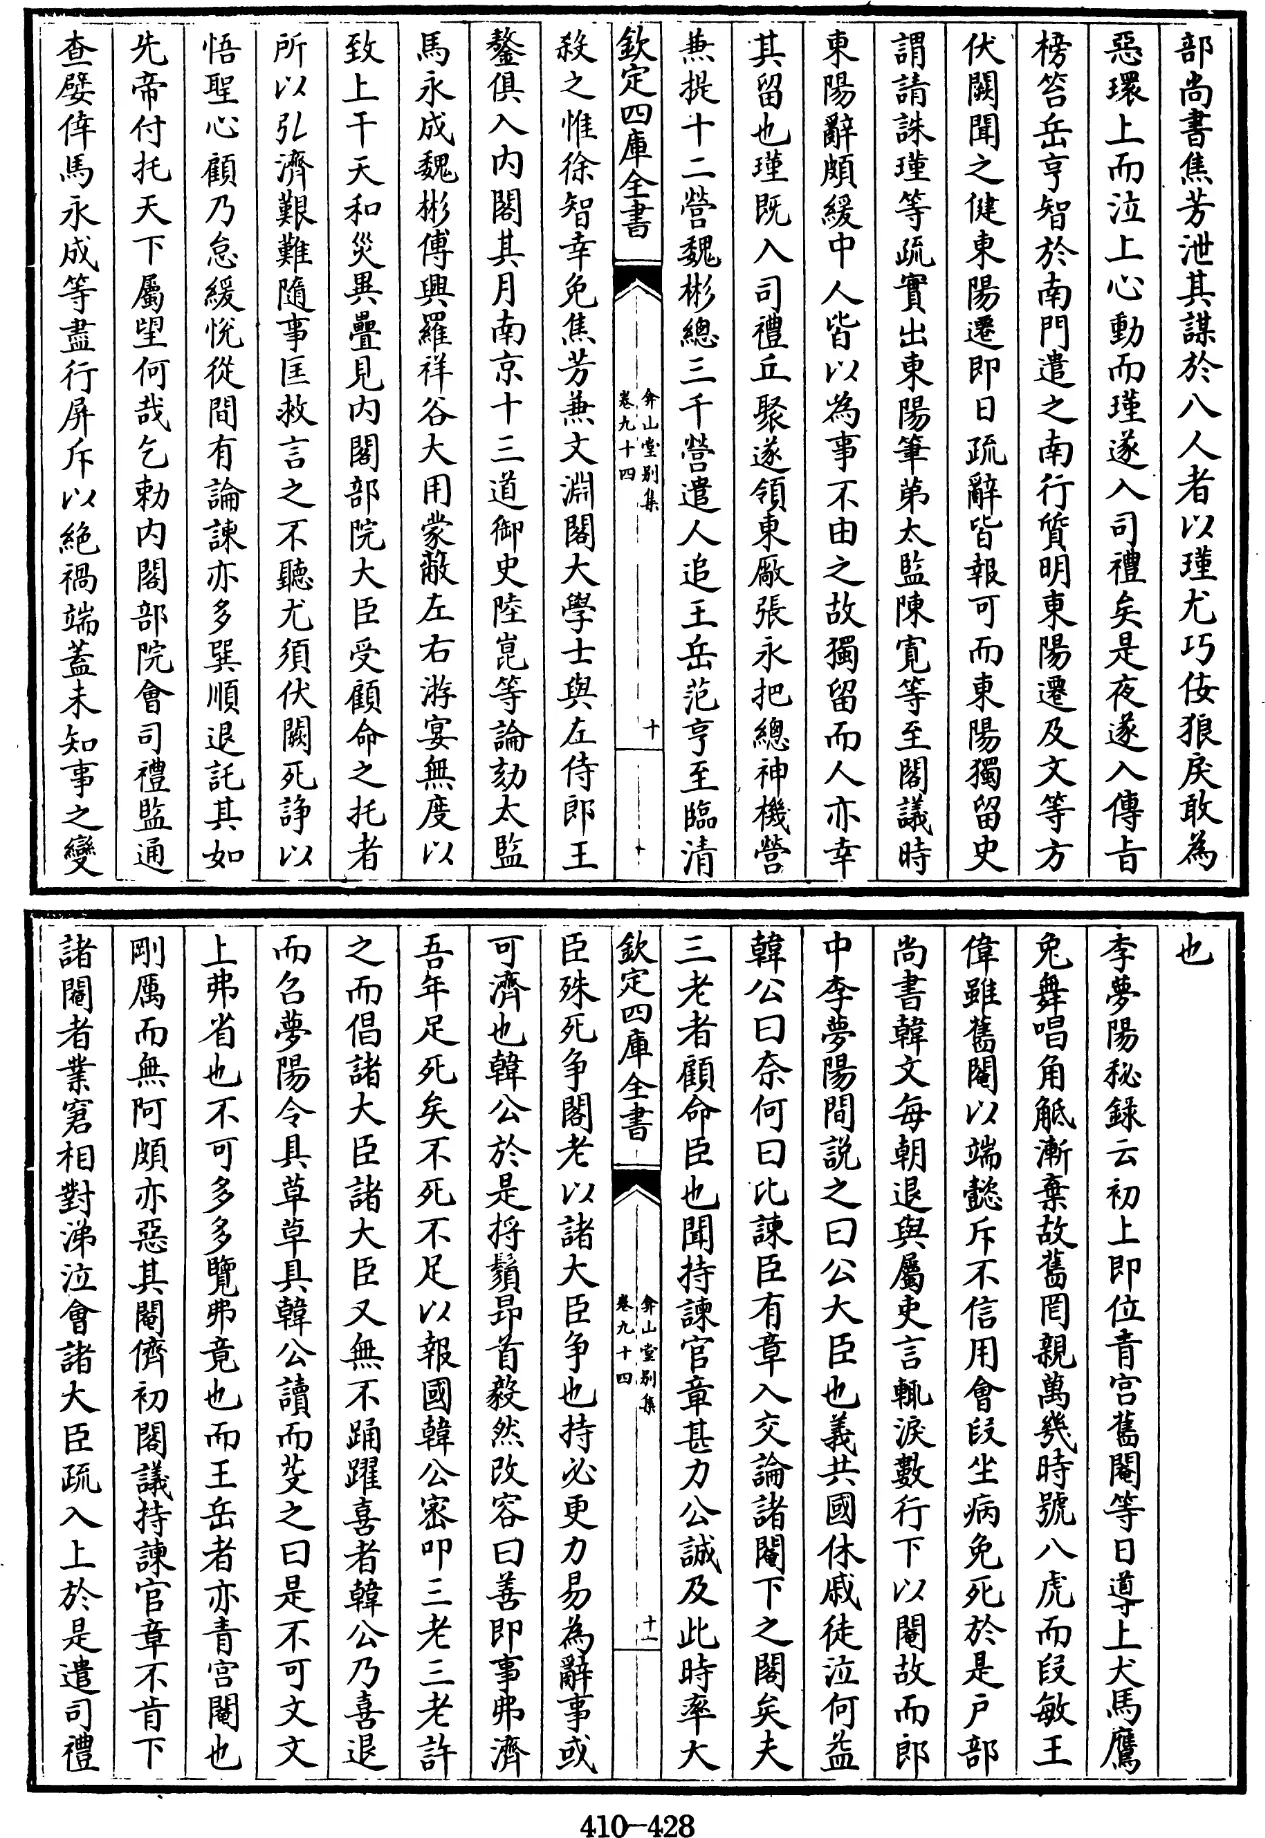 部尚書焦芳泄其謀於八人者以瑾尤巧佞狼戾敢為
惡環上而泣上心動而瑾遂入司禮矣是夜遂入傳㫖
榜笞岳亨智於南門遣之南行質明東陽遷及文等方
伏闕聞之健東陽遷即日疏辭皆報可而東陽獨留史
謂請誅瑾等疏實出東陽筆第太監陳寛等至閣議時
東陽辭頗緩中人皆以為事不由之故獨留而人亦幸
其留也瑾既入司禮丘聚遂領東厰張永把總神機營
兼提十二營魏彬總三千營遣人追王岳范亨至臨清
欽定四庫全書
弇山堂别集
卷九十四
十
殺之惟徐智幸免焦芳兼文淵閣大學士與左侍郎王
鏊俱入内閣其月南京十三道御史陸崑等論劾太監
馬永成魏彬傅興羅祥谷大用蒙蔽左右游宴無度以
致上干天和災異疊見内閣部院大臣受顧命之托者
所以弘濟艱難隨事匡救言之不聽尤須伏闕死諍以
悟聖心顧乃怠緩悦從間有論諫亦多巽順退託其如
先帝付托天下屬望何哉乞勅内閣部院會司禮監通
查嬖倖馬永成等盡行屏斥以絶禍端蓋未知事之變
也
李夢陽秘錄云初上即位青宫舊閹等日導上犬馬鷹
兔舞唱角觝漸棄故舊罔親萬幾時號八虎而段敏王
偉雖舊閹以端懿斥不信用會段坐病免死於是户部
尚書韓文每朝退與屬吏言輒淚數行下以閹故而郎
中李夢陽間説之曰公大臣也義共國休戚徒泣何益
韓公曰奈何曰比諫臣有章入交論諸閹下之閣矣夫
三老者顧命臣也聞持諫官章甚力公誠及此時率大
欽定四庫全書
弇山堂别集
卷九十四
十一
臣殊死争閣老以諸大臣争也持必更力易為辭事或
可濟也韓公於是捋鬚昂首毅然改容曰善即事弗濟
吾年足死矣不死不足以報國韓公密叩三老三老許
之而倡諸大臣諸大臣又無不踊躍喜者韓公乃喜退
而召夢陽令具草草具韓公讀而芟之曰是不可文文
上弗省也不可多多覽弗竟也而王岳者亦青宫閹也
剛厲而無阿頗亦惡其閹儕初閣議持諫官章不肯下
諸閹者業窘相對涕泣會諸大臣疏入上於是遣司禮
410-428